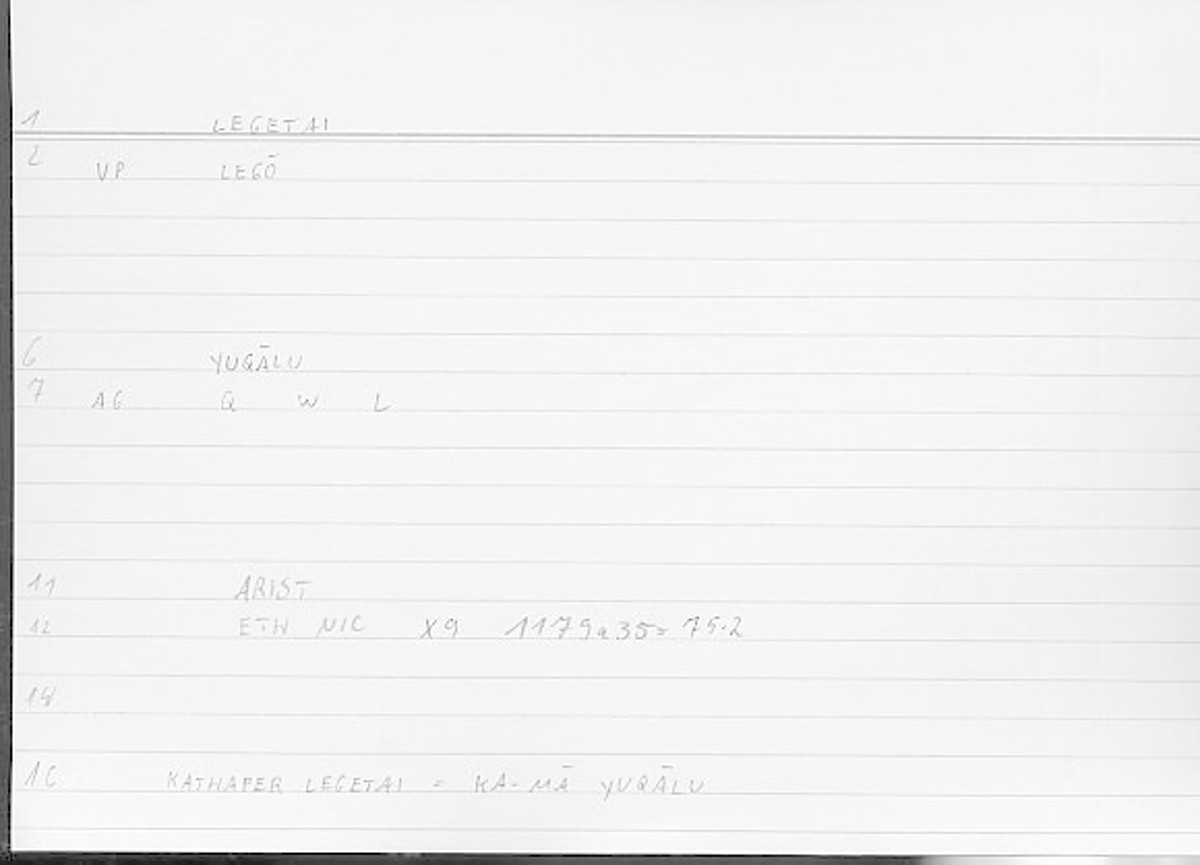 1 LEGETAI
2 VP LEGŌ
6 YUQĀLU
7 AG Q W L
11 ARIST
12 ETH NIC X9 1179a35= 75.2
14
16 KATHAPER LEGETAI = KA-MĀ YUQĀLU